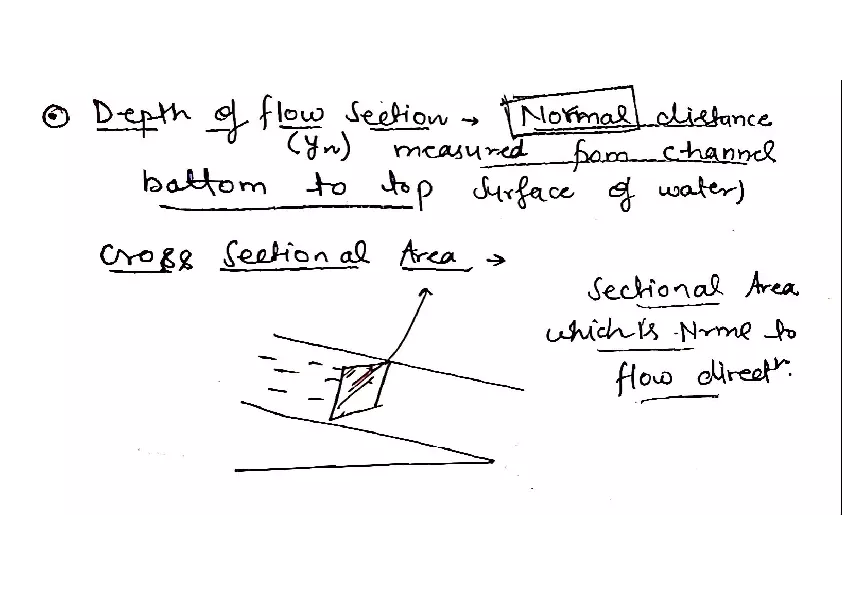 Depth of flow Section → Normal distance
(yn) measured from channel
bottom to top Surface of water)
Cross Sectional Area →
Sectional Area
which is Nrml to
flow directn.